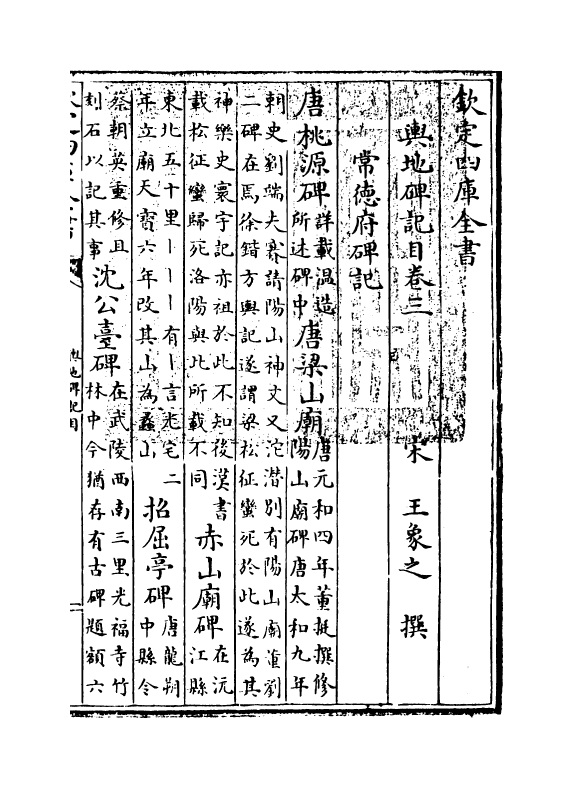 欽定四庫全書
輿地碑記目卷三　宋　王象之　撰
常德府碑記
唐桃源碑詳載温造所述碑中唐梁山廟唐元和四年董挺撰修陽山廟碑唐太和九年
朝史劉端夫賽請陽山神文又沱潛別有陽山廟董劉
二碑在焉徐鍇方輿記遂謂梁松征蠻死於此遂為其
神樂史寰宇記亦祖於此不知後漢書載松征蠻歸死洛陽與此所載不同赤山廟碑在沅江縣
東北五十里丨丨丨有丨言光宅二年立廟天寶六年改其山為蠡山招屈亭碑唐龍朔中縣令
蔡朝英重修且刻石以記其事沈公臺碑在武陵西南三里光福寺竹林中今猶存有古碑題額六
輿地碑記目